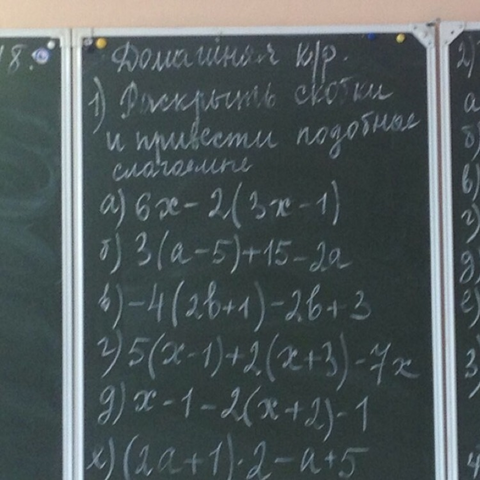 18.
Домашняя к/р.
1) Раскрыть скобки
и привести подобные
слагаемые
а) 6x-2(3x-1)
б) 3(a-5)+15-2a
в) -4(2b+1)-2b+3
г) 5(x-1)+2(x+3)-7x
д) x-1-2(x+2)-1
(2a+1)·2-a+5
2)
а
б)
в)
г)
д)
е)
3
4